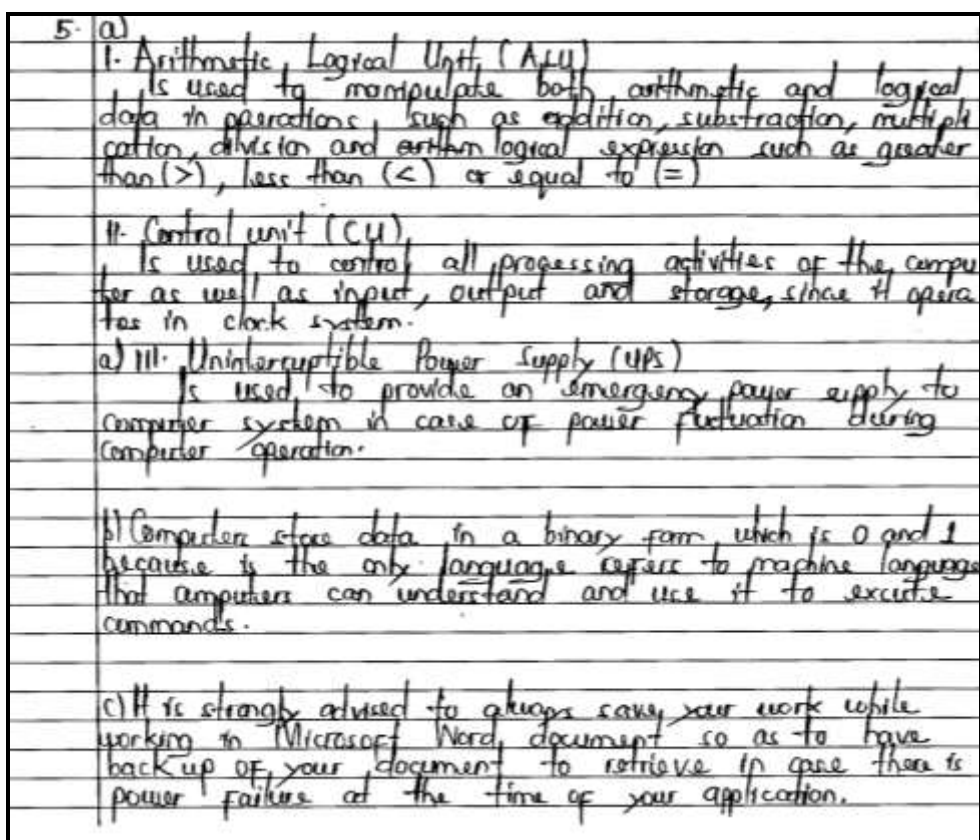 5. a)
I. Arithmetic Logical Unit (ALU)
Is used to manipulate both arithmetic and logical
data in operations, such as addition, substraction, multipli
cation, division and logical expression such as greater
than (>), less than (<) or equal to (=)
II. Control unit (CU)
Is used to control all processing activities of the compu
ter as well as input, output and storage, since it opera
tes in clock system.
a) III. Uninterruptible Power Supply (UPS)
Is used to provide an emergency power supply to
computer system in case of power fluctuation during
computer operation.
b) Computers store data in a binary form which is 0 and 1
because is the only language refers to machine language
that computers can understand and use it to excute
commands.
c) It is strongly advised to always save your work while
working in Microsoft Word document so as to have
back up of your document to retrieve in case there is
power failure at the time of your application.